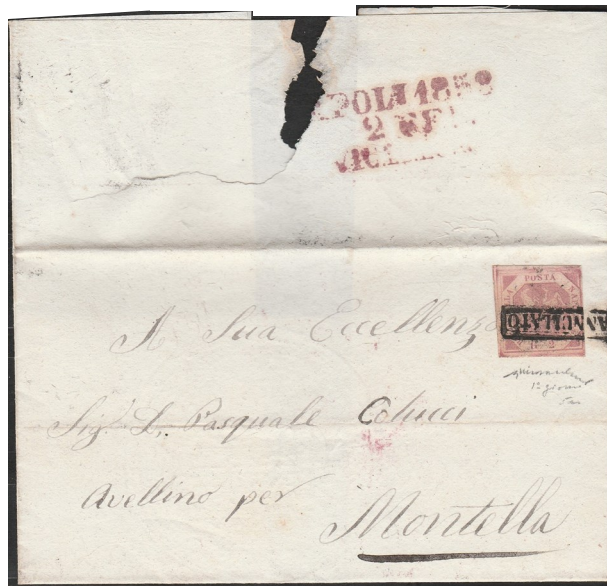 POLI 1858
2
POSTA
ANNULLATO
A Sua Eccellenza
Sig. D. Pasquale Colucci
Avellino per
Montella